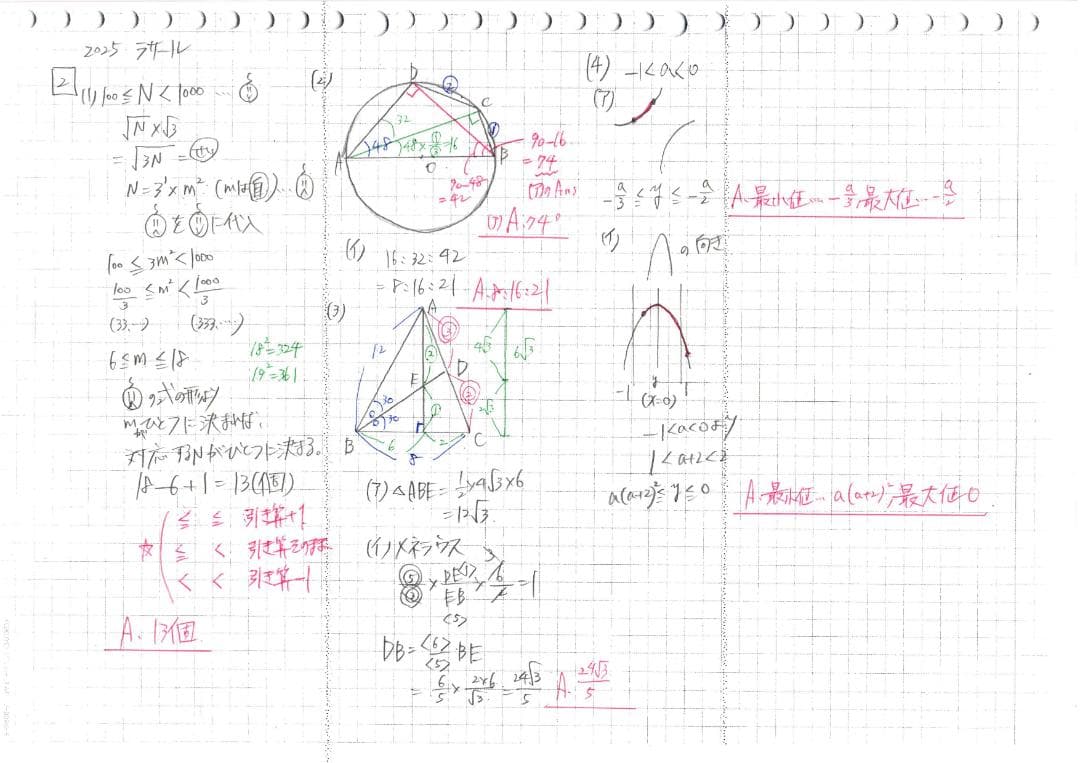 2025 ラサール
2
(1) 100≦N<1000 …
√N×√3
=√3N =
N=3¹×m² (mは自)…
を に代入
100≦3m²<1000
100/3≦m²<1000/3
(33,…) (333,…)
6≦m≦18
18²=324
19²=361
の式の形より
mがひとつに決まれば、
対応するNがひとつに決まる。
18-6+1=13(個)
☆
≦ ≦ 引き算+1
≦ < 引き算そのまま
< < 引き算-1
A. 13個
(2)
D
②
C
①
32
48
48×①/③=16
A
O
B
90-16
=74
(ア)のAns
90-48
=42
(ア) A.74°
(イ)
16:32:42
=8:16:21
A.8:16:21
(3)
A
③
12
②
4√3
6√3
D
E
②
①
2√3
30
30
B
6
2
C
8
(ア) △ABE=1/2×4√3×6
=12√3
(イ) メネラウス
⑤/②×DE<1>/EB<5>×6/4=1
3
DB=<6>/<5>BE
=6/5×2×6/√3=24√3/5
A. 24√3/5
(4) -1<a<0
(ア)
-a/3≦y≦-a/2
A.最小値…-a/3,最大値…-a/2
(イ)
の向き
-1
1
(x=0)
-1<a<0より
1<a+2<2
a(a+2)²≦y≦0
A.最小値…a(a+2)²,最大値…0